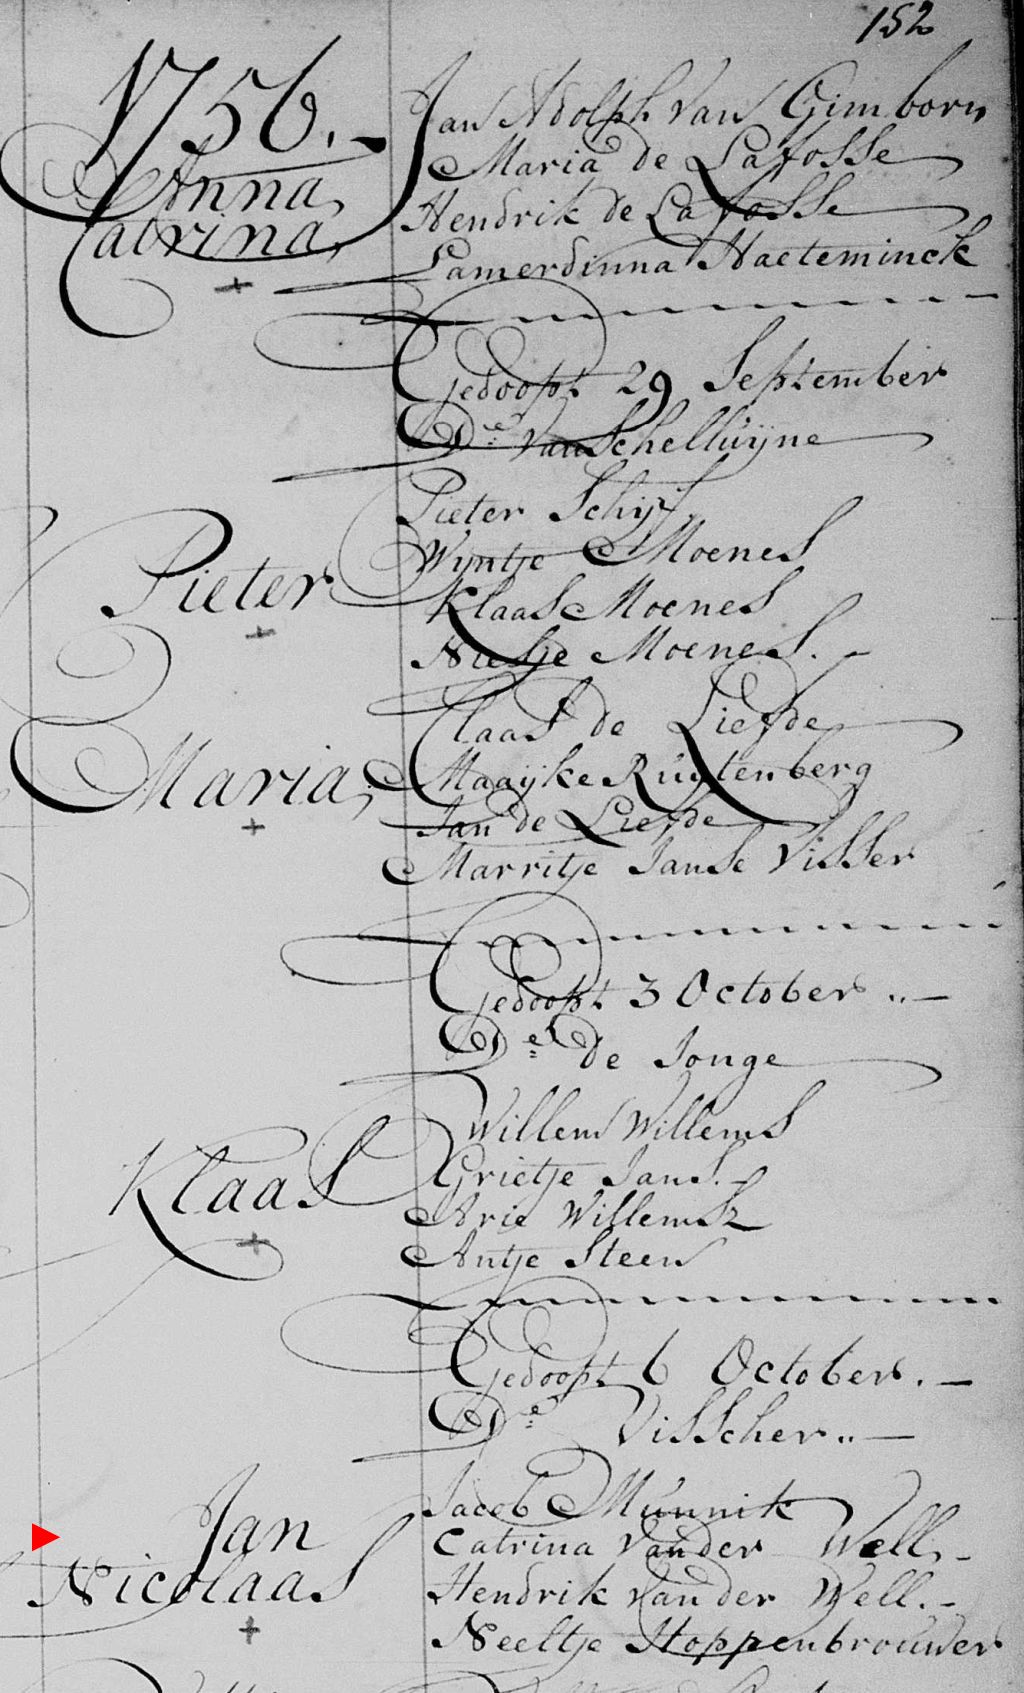 152
1756.
Anna
Catrina
Jan Adolph Van Gimborn
Maria de Lafosse
Hendrik de Lafosse
Lamerdinna Haeteminck
Gedoopt 29 September
De Van Schelluijne
Pieter
Pieter Schijf
Wijntje Moenes
Klaas Moenes
Niesje Moenes.
Maria
Claas de Liefde
Maaijke Ruytenberg
Jan de Liefde
Marritje Janse Visser
Gedoopt 3 October
De de Jonge
Klaas
Willem Willems
Grietje Jans.
Arie Willemsz
Antje Steen
Gedoopt 6 October.
De Visscher
Jan
Nicolaas
Jacob Munnik
Catrina Van der Well
Hendrik Van der Well.
Neeltje Hoppenbrouwer